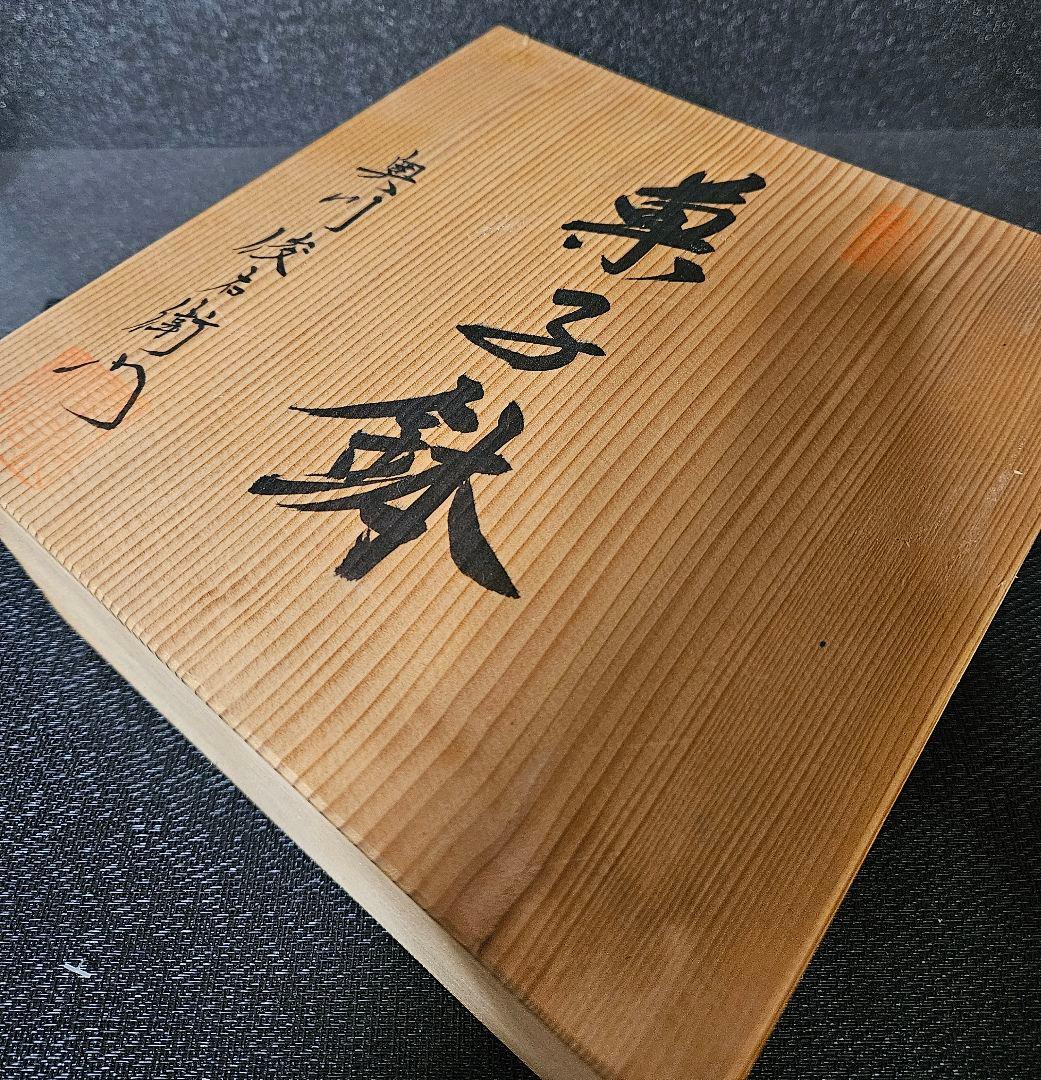 菓子鉢
奥川俊右衛門